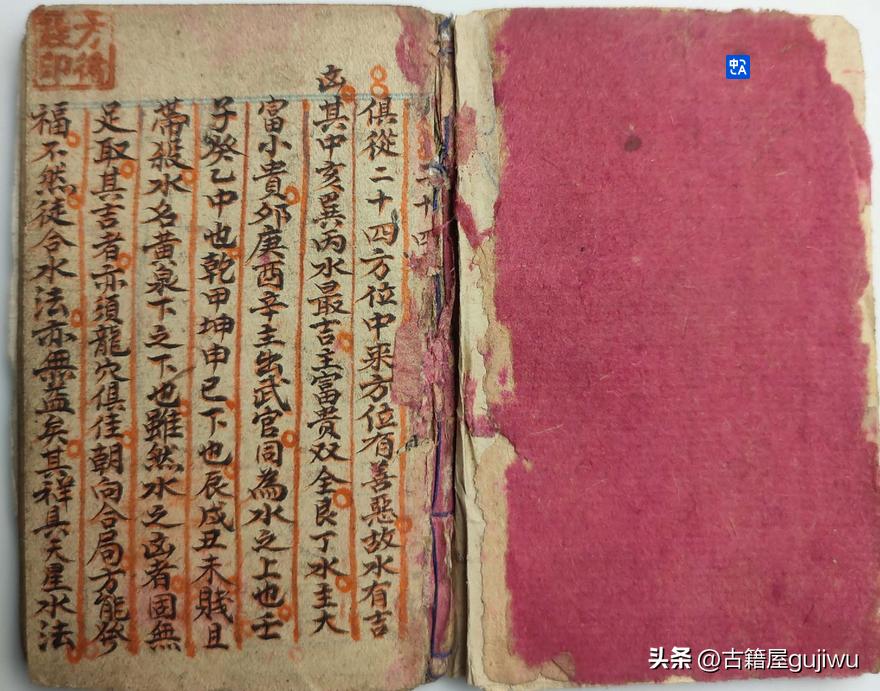 二十四
俱從二十四方位中来方位有善惡故水有吉
凶其中亥巽丙水最吉主富貴双全艮丁水主大
富小貴夘庚酉辛主出武官同為水之上也壬
子癸乙中也乾甲坤申已下也辰戌丑未賤且
帶殺水名黄泉下之下也雖然水之凶者固無
足取其吉者亦須龍穴俱佳朝向合局方能發
福不然徒合水法亦無益矣其祥具天星水法
印
中A
头条 @古籍屋gujiwu